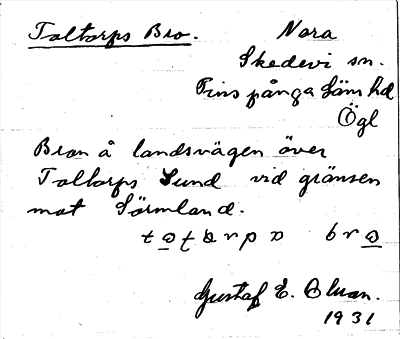 Taltorps Bro.
Nora
Skedevi sn.
Finspångaläns hd
Ögl
Bron å landsvägen över
Taltorps Sund vid gränsen
mot Sörmland.
Gustaf E.
1931